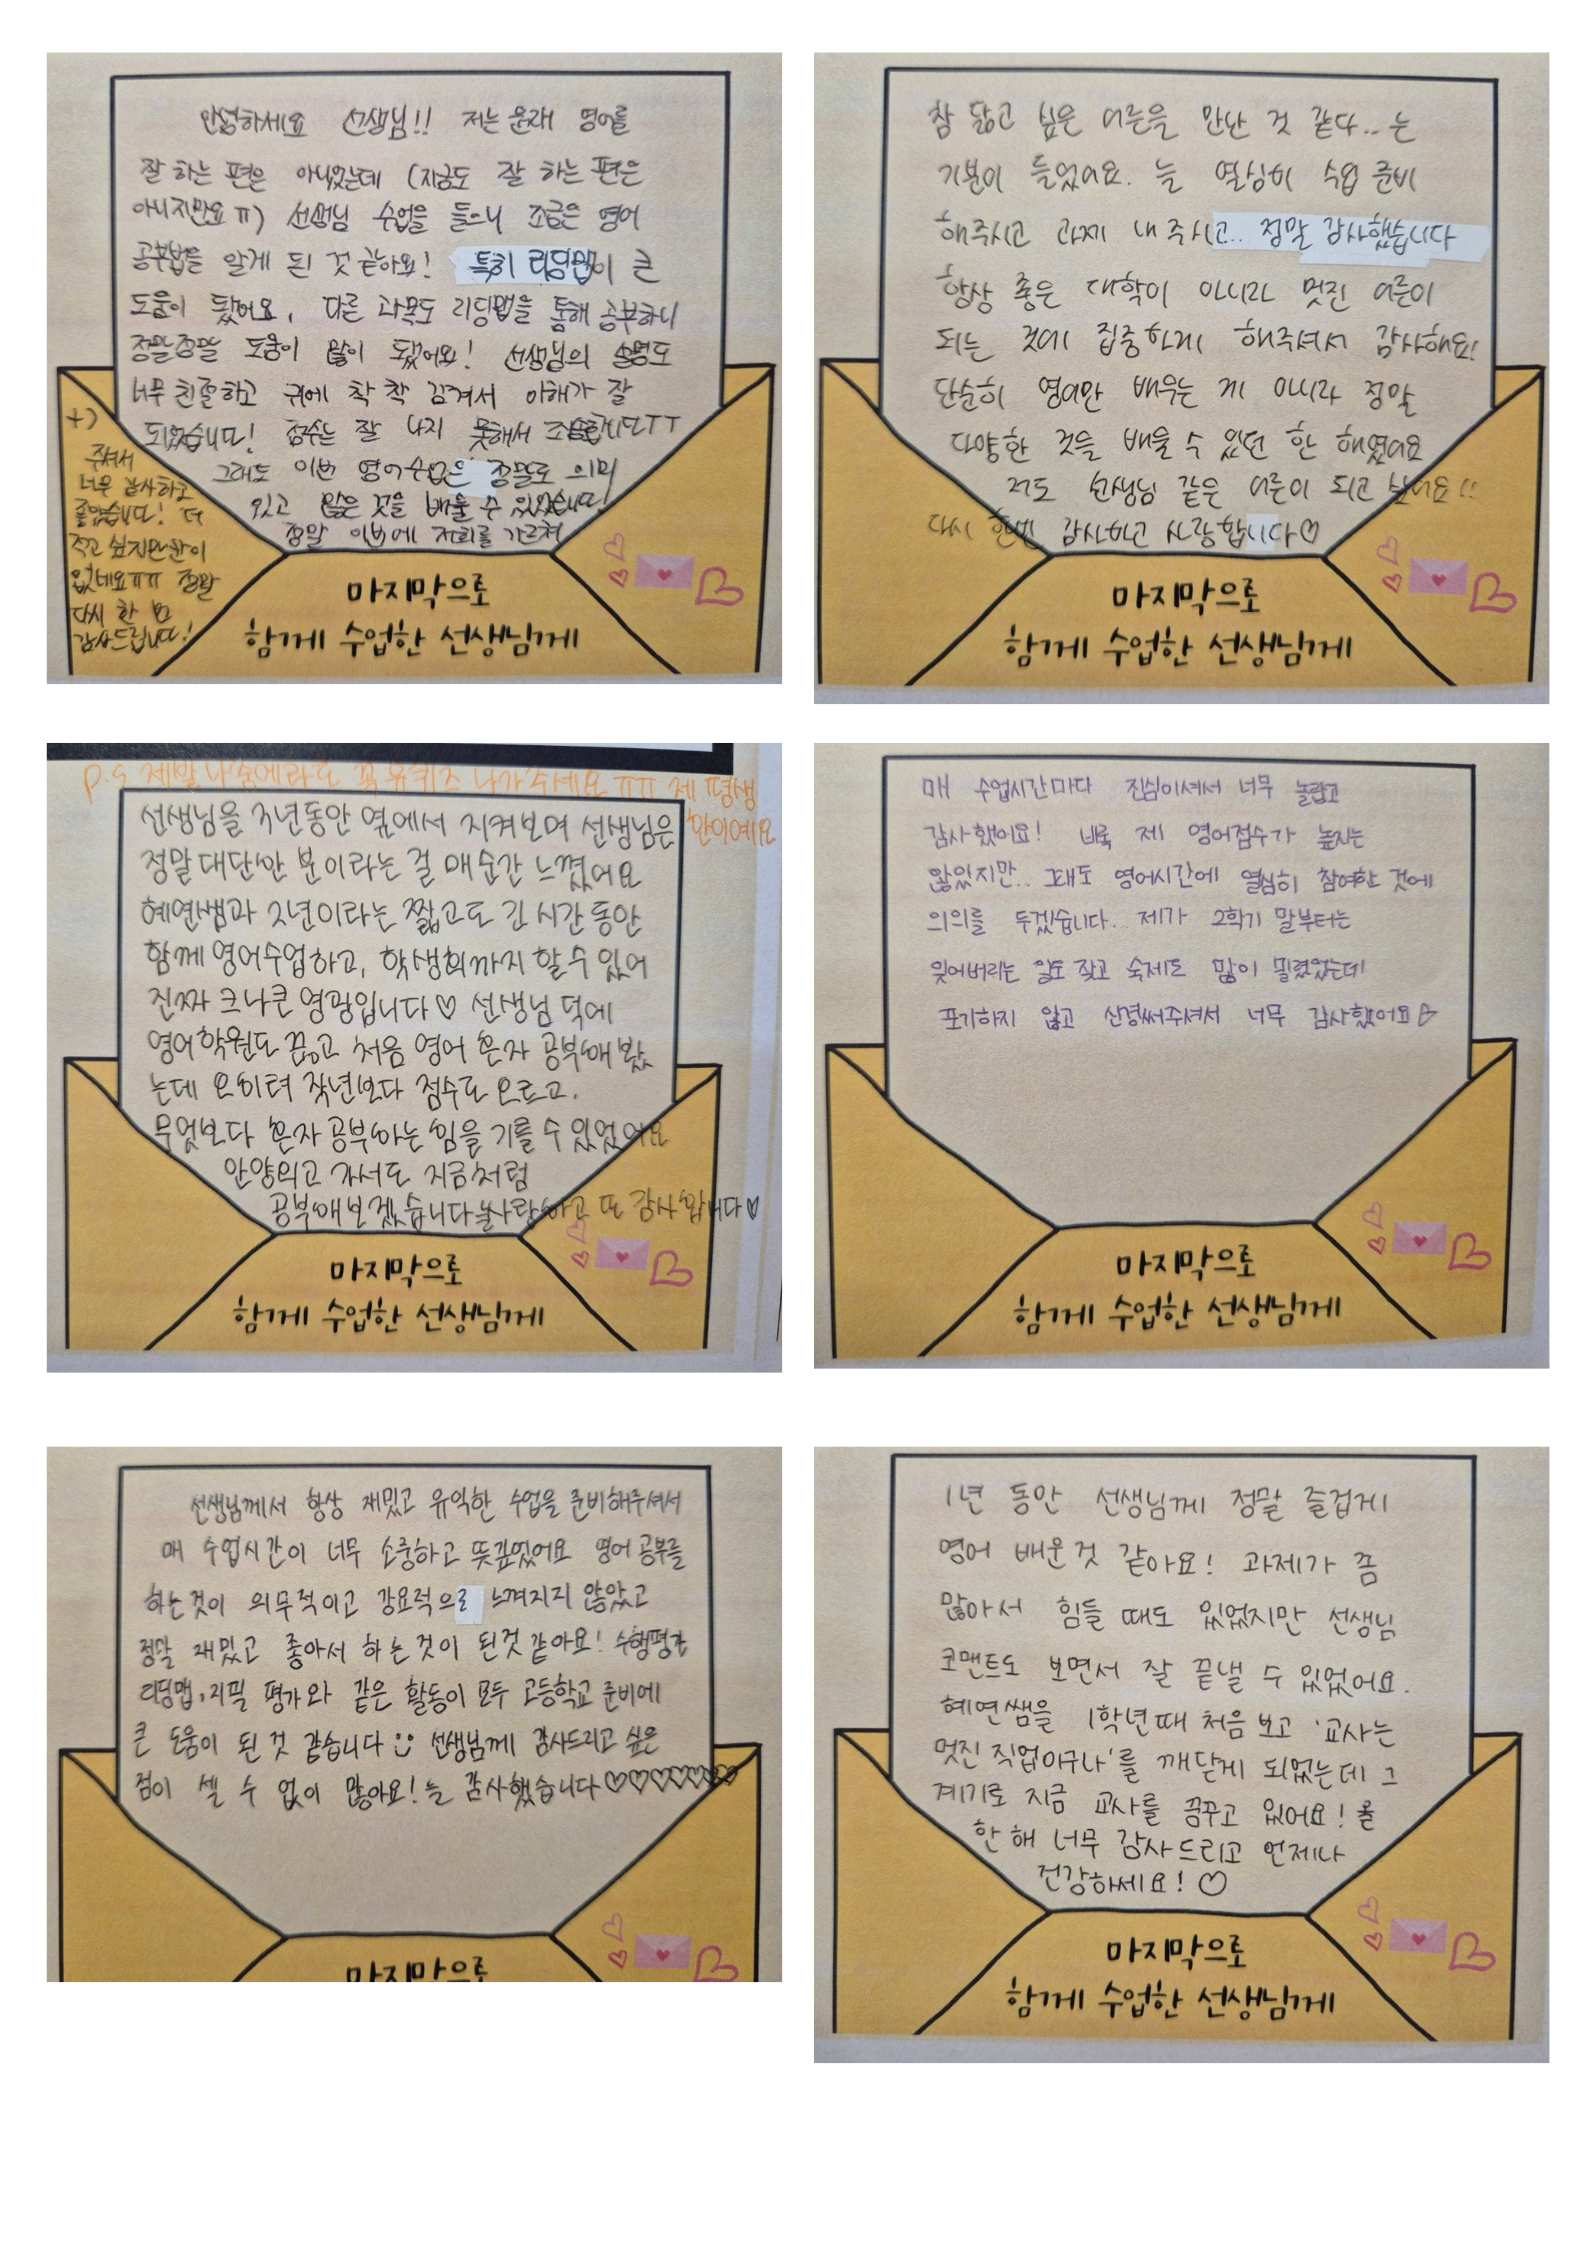 안녕하세요 선생님!! 저는 원래 영어를
잘 하는 편은 아니었는데 (지금도 잘 하는 편은
아니지만요ㅠ) 선생님 수업을 들으니 조금은 영어
공부법을 알게 된 것 같아요! 특히 리딩맵이 큰
도움이 됐어요. 다른 과목도 리딩맵을 통해 공부하니
정말정말 도움이 많이 됐어요! 선생님의 설명도
너무 친절하고 귀에 착 착 감겨서 이해가 잘
되었습니다! 점수는 잘 나지 못해서 조금
그래도 이번 영어수업은 정말로 의미
있고 많은 것을 배울 수 있었습니다!
정말 이번에 저희를 가르쳐
+)
주셔서
너무 감사하고
좋았습니다! 더
적고 싶지만 칸이
없네요ㅠㅠ 정말
다시 한 번
감사드립니다!
마지막으로
함께 수업한 선생님께
참 닮고 싶은 어른을 만난 것 같다..는
기분이 들었어요. 늘 열심히 수업 준비
해주시고 과제 내 주시고.. 정말 감사했습니다
항상 좋은 대학이 아니라 멋진 어른이
되는 것에 집중하게 해주셔서 감사해요!
단순히 영어만 배우는 게 아니라 정말
다양한 것을 배울 수 있던 한 해였어요
저도 선생님 같은 어른이 되고 싶어요!!
다시 한번 감사하고 사랑합니다♡
마지막으로
함께 수업한 선생님께
P.S 제발 나중에라도 꼭 유퀴즈 나가주세요ㅠㅠ 제 평생
한이예요
선생님을 3년동안 옆에서 지켜보며 선생님은
정말 대단한 분이라는 걸 매순간 느꼈어요
혜연쌤과 2년이라는 짧고도 긴 시간 동안
함께 영어수업하고, 학생회까지 할 수 있어
진짜 크나큰 영광입니다♡ 선생님 덕에
영어학원도 끊고 처음 영어 혼자 공부해 봤
는데 오히려 작년보다 점수도 오르고.
무엇보다 혼자 공부하는 힘을 기를 수 있었어요
안양외고 가서도 지금처럼
공부해보겠습니다 사랑하고 또 감사합니다♡
마지막으로
함께 수업한 선생님께
매 수업시간마다 진심이셔서 너무 놀랍고
감사했어요! 비록 제 영어점수가 높지는
않았지만.. 그래도 영어시간에 열심히 참여한 것에
의의를 두겠습니다... 제가 2학기 말부터는
잊어버리는 일도 잦고 숙제도 많이 밀렸었는데
포기하지 않고 신경써주셔서 너무 감사했어요♡
마지막으로
함께 수업한 선생님께
선생님께서 항상 재밌고 유익한 수업을 준비해주셔서
매 수업시간이 너무 소중하고 뜻깊었어요 영어 공부를
하는것이 의무적이고 강요적으로 느껴지지 않았고
정말 재밌고 좋아서 하는것이 된것 같아요! 수행평가
리딩맵, 지필 평가와 같은 활동이 모두 고등학교 준비에
큰 도움이 된 것 같습니다 선생님께 감사드리고 싶은
점이 셀 수 없이 많아요! 늘 감사했습니다♡♡♡♡♡♡
마지막으로
1년 동안 선생님께 정말 즐겁게
영어 배운것 같아요! 과제가 쫌
많아서 힘들 때도 있었지만 선생님
코맨트도 보면서 잘 끝낼 수 있었어요.
혜연쌤을 1학년때 처음 보고 '교사는
멋진 직업이구나'를 깨닫게 되었는데 그
계기로 지금 교사를 꿈꾸고 있어요! 올
한 해 너무 감사드리고 언제나
건강하세요! ♡
마지막으로
함께 수업한 선생님께